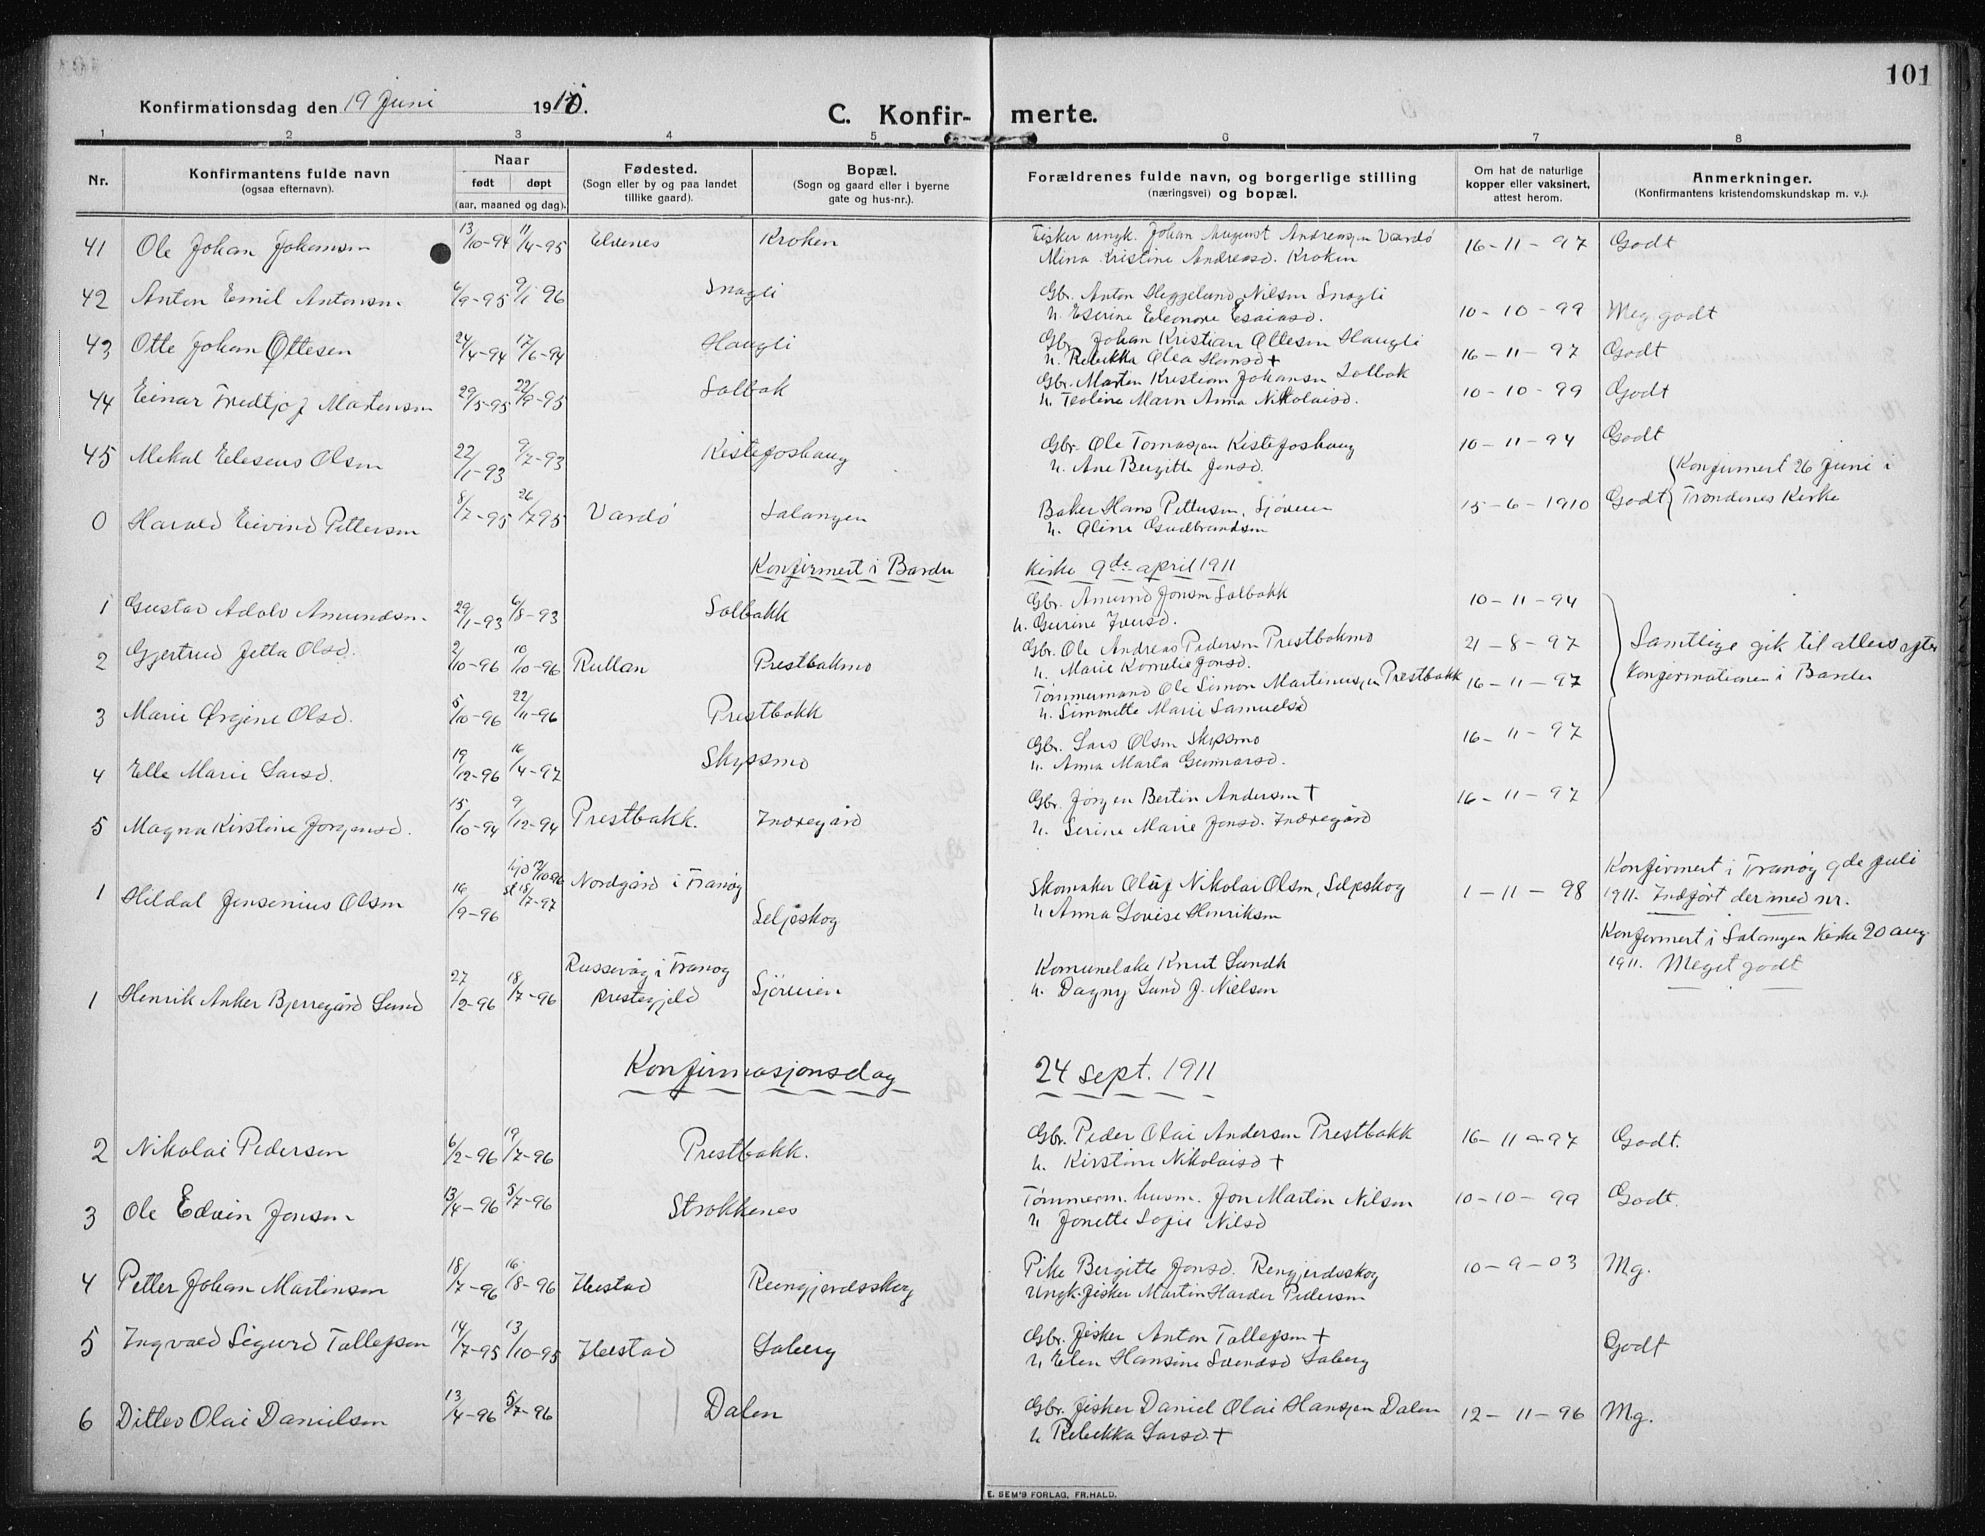 101
Konfirmationsdag den 19 Juni 1910. C. Konfirmerte.
1 2 3 4 5 6 7 8
Nr. Konfirmantens fulde navn (ogsaa efternavn). Naar født døpt (aar, maaned og dag). Fødested. (Sogn eller by og paa landet tillike gaard). Bopæl. (Sogn og gaard eller i byerne gate og hus-nr.). Forældrenes fulde navn, og borgerlige stilling (næringsvei) og bopæl. Om hat de naturlige kopper eller vaksinert, attest herom. Anmerkninger. (Konfirmantens kristendomskundskap m. v.).
41 Ole Johan Johansen 13/10-94 11/4-95 Elvenes Kroken Fisker ungk. Johan August Andreassen Vardø 16-11-97 Godt
Mina Kristine Andreasd. Kroken
42 Anton Emil Antonsn. 6/9-95 9/1 96 Snogli Gbr. Anton Heggelund Nilsen Snogli 10-10-99 Meg. godt
h. Eserine Eleonore Esaiasd.
43 Otte Johan Ottesen 24/4-94 17/6-94 Haugli Gbr. Johan Kristian Ottesen Haugli 16-11-97 Godt
h. Rebekka Olea Hansd +
44 Einar Fredtjof Martensen 29/5-95 22/9-95 Solbak Gbr. Marten Kristian Johansn Solbak 10-10-99 Godt
h. Teoline Marn Anna Nikolaisd.
45 Mekal Eleseus Olsen 22/1-93 9/7-93 Kistefoshaug Gbr. Ole Tomassen Kistefoshaug 10-11-94 Godt
h. Ane Bergitte Jonsd.
0 Harald Eivind Pettersen 8/7-95 26/7 95 Vardø Salangen Baker Hans Pettersen, Sjøveien 15-6-1910 Godt (Konfirmert 26 Juni i Trondenes Kirke
h. Oline Gudbrandsen
Konfirmert i Bardu Kirke 9de april 1911
1 Gustav Adolv Amundsn. 29/1-93 6/8-93 Solbakk Gbr. Amund Jonsen Solbakk 10-11-94
h. Gurine Iversd.
2 Gjertrud Jetta Olsd. 2/10-96 10/10-96 Rullan Prestbakmo Gbr. Ole Andreas Pedersen Prestbakmo 21-8-97 Samtlige gik til alters efter
h. Marie Kornelie Jonsd. Konfirmationen i Bardu
3 Marie Ørgine Olsd. 5/10-96 22/11-96 Prestbakk Tømmermand Ole Simon Martinussen Prestbakk 16-11-97
h. Simonette Marie Samuelsd
4 Elle Marie Larsd. 19/12-96 16/4-97 Skyssmo Gbr. Lars Olsen Skyssmo 16-11-97
h. Anna Marta Gunnarsd.
5 Magna Kirstine Jorgensd. 15/10-94 9/12-94 Prestbakk. Indregård Gbr. Jörgen Bertin Andersen + 16-11-97
h. Serine Marie Jonsd. Indregård
1 Hildal Jensenius Olsen 16/9-96 hjd 17/10-96 st 18/7-97 Nordgård i Tranøy Seljeskog Skomaker Oluf Nikolai Olsen, Seljeskog 1-11-98 Konfirmert i Tranøy 9de Juli
h Anna Lovise Henriksen 1911. Indført der med nr.
1 Henrik Anker Bjerregård Lund 27/12-96 18/7-96 Russevåg i Tranøy prestegjeld Sjöveien Komunelæke Knut Lundh Konfirmert i Salangen Kirke 20 aug.
h. Dagny Lund f. Nielsen 1911. Meget godt
Konfirmasjonsdag 24 sept. 1911
2 Nikolai Pedersen 6/2-96 19/7-96 Prestbakk. Gbr. Peder Olai Andersen Prestbakk 16-11-97 Godt.
h. Kirstine Nikolaisd +
3 Ole Edvin Jonsen 13/4-96 5/7-96 Strokkenes Tømmerm. husm. Jon Martin Nilsen 10-10-99 Godt.
h Jonette Sofie Nilsd
4 Petter Johan Martinsen 18/7-96 16/8-96 Ibestad Rengjerdsskog Pike Bergitte Jonsd. Rengjerdsskog 10-9-03 Mg.
Ungk. fisker Martin Harder Pedersen
5 Ingvald Sigurd Tollefsen 14/7-95 13/10-95 Ibestad Laberg Gbr. fisker Anton Tollefsen + Godt
h Elen Hansine Svendsd Laberg
6 Ditlev Olai Danielsen 13/4-96 5/7-96 Dalen Gbr. fisker Daniel Olai Hanssen Dalen 12-11-96 Mg.
h Rebekka Larsd. +
E. SEM'S FORLAG, FR.HALD.